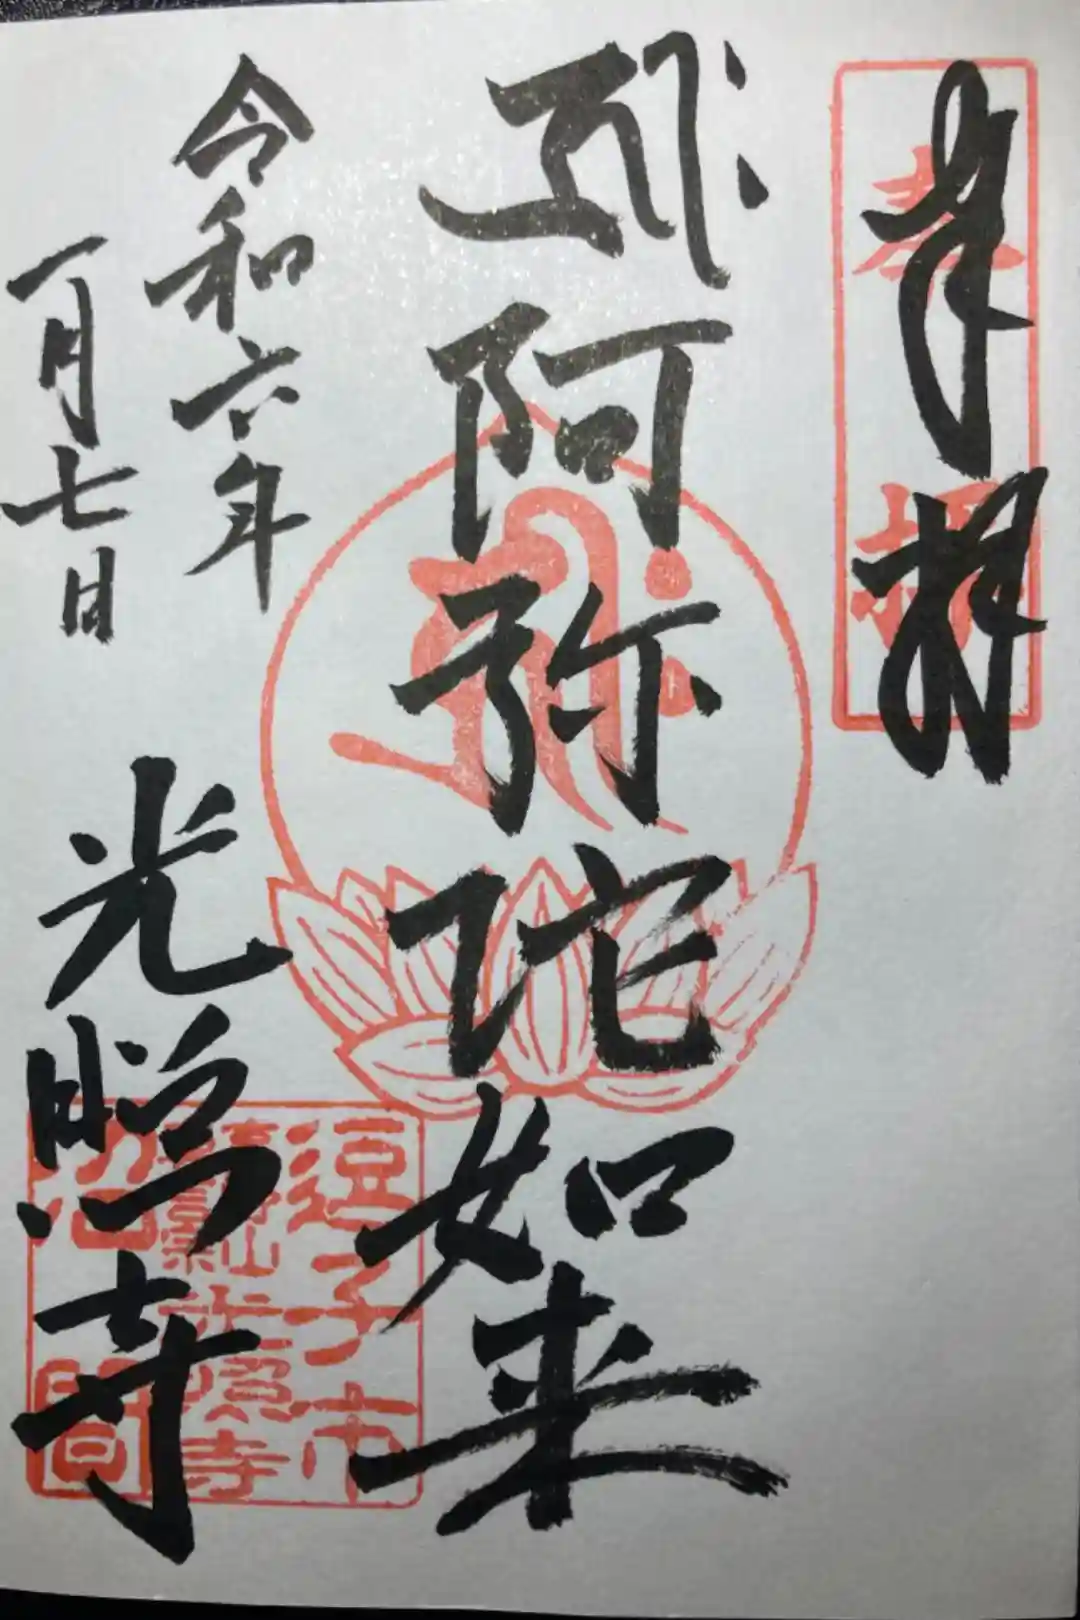 奉拝
阿弥陀如来
令和六年
一月七日
光照寺
奉拝
逗子市
光照寺
沼間